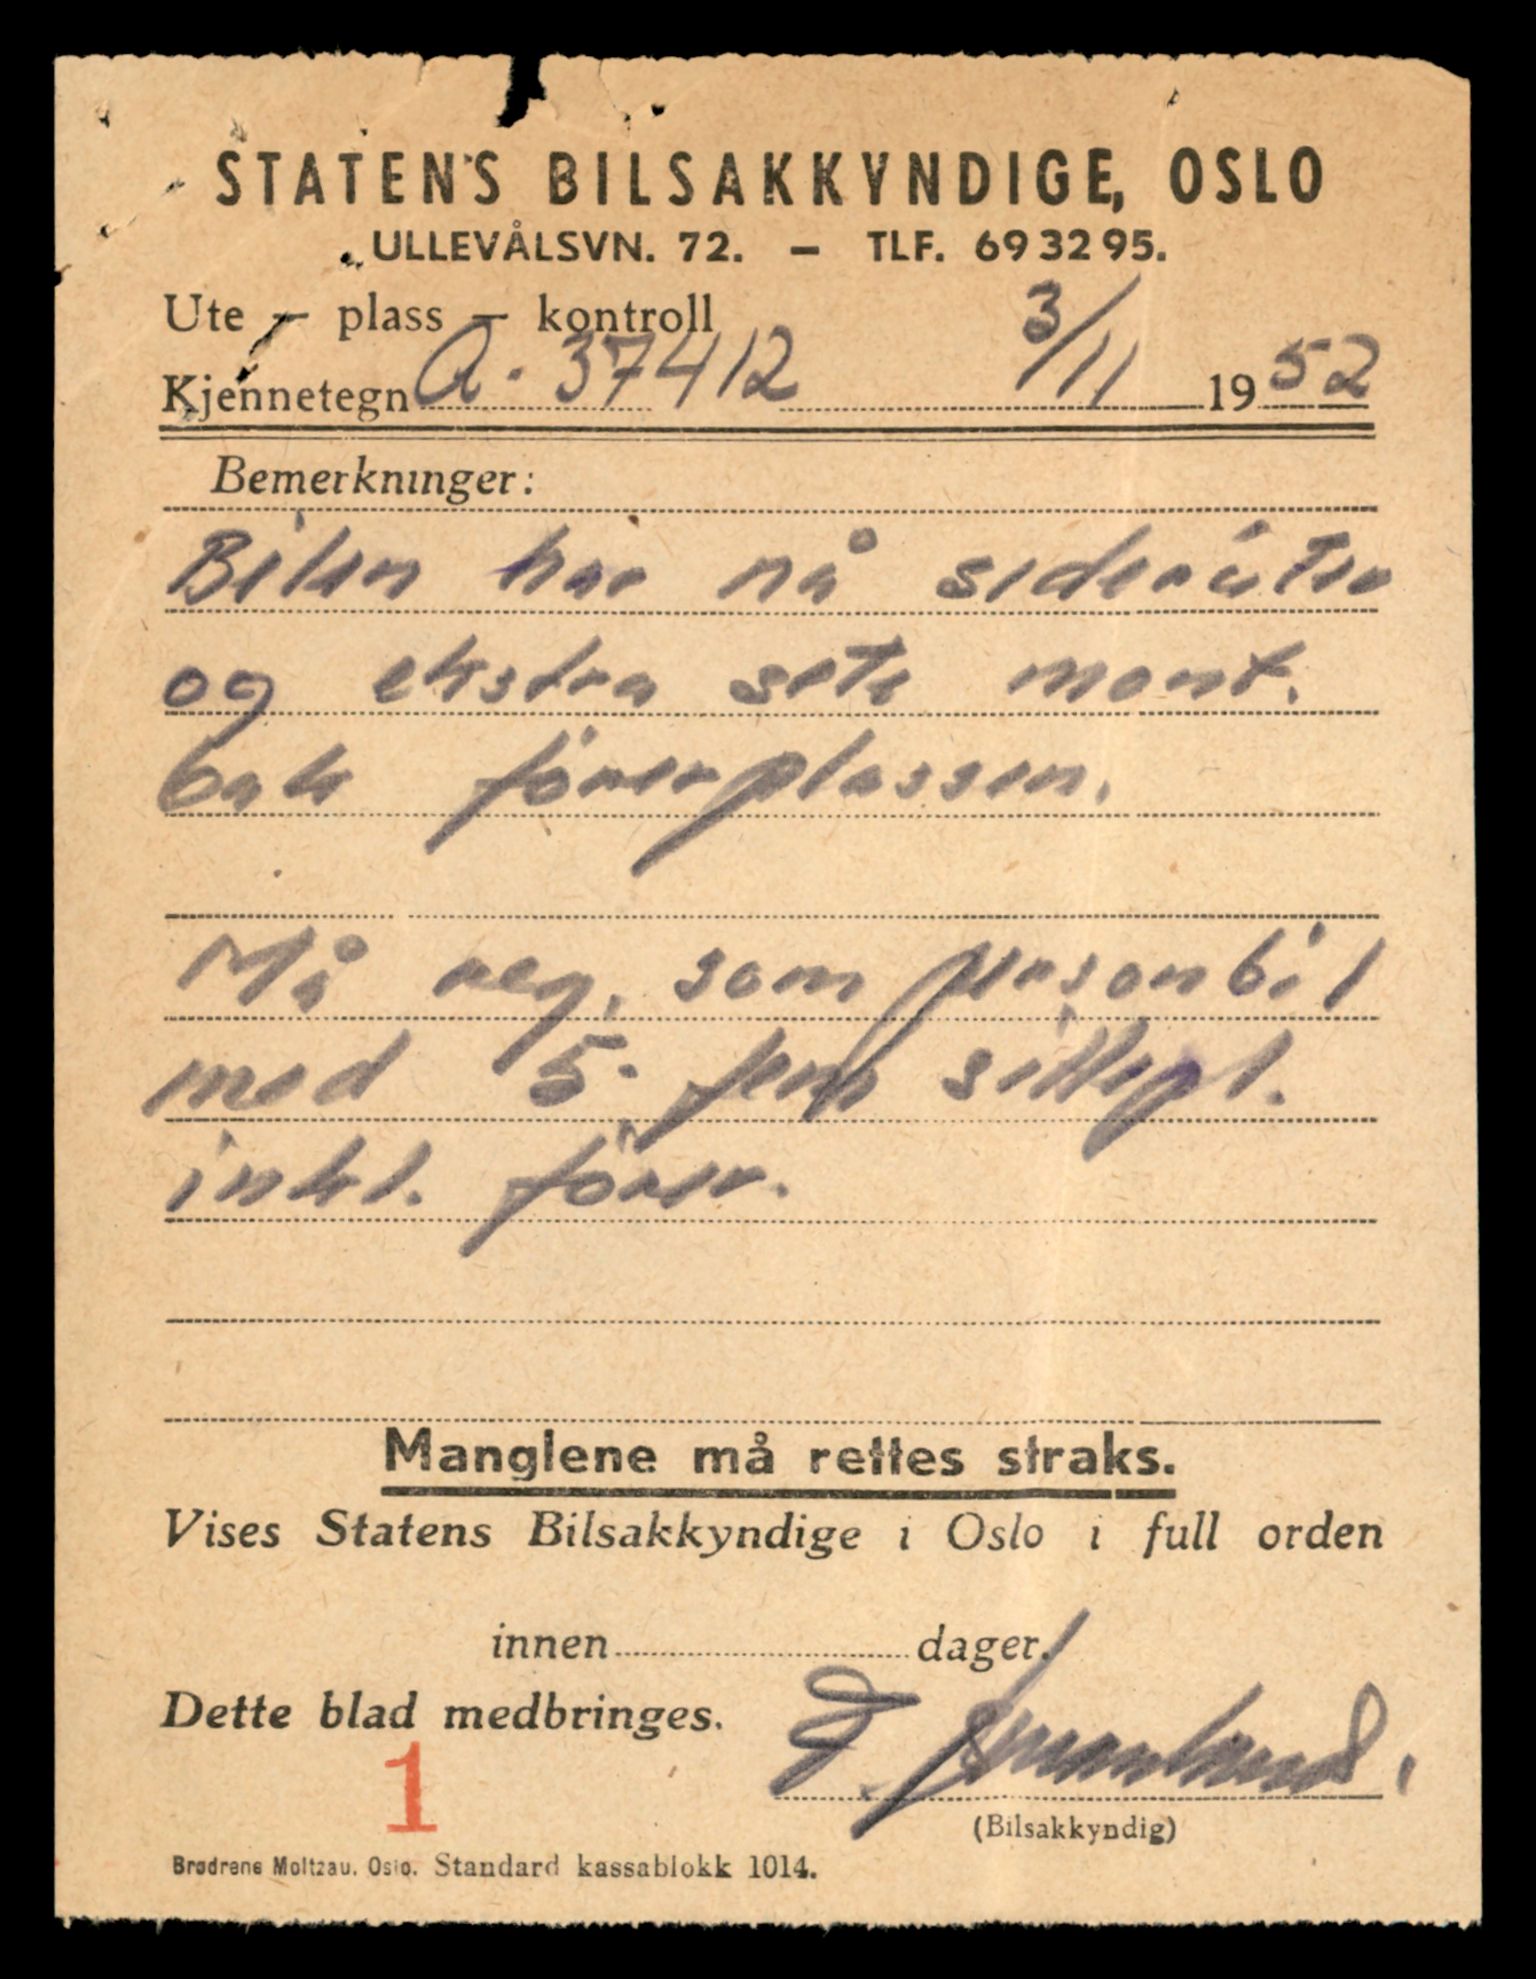 STATENS BILSAKKYNDIGE, OSLO
ULLEVÅLSVN. 72. — TLF. 69 32 95.
Ute — plass — kontroll
Kjennetegn A. 37412 3/11 1952
Bemerkninger:
Bilen har nå sideruter
og ekstra sete mont.
bak förerplassen.
Må reg. som personbil
med 5. fem sittepl.
inkl. förer.
Manglene må rettes straks.
Vises Statens Bilsakkyndige i Oslo i full orden
innen dager.
Dette blad medbringes.
1
(Bilsakkyndig)
Brødrene Moltzau. Oslo. Standard kassablokk 1014.